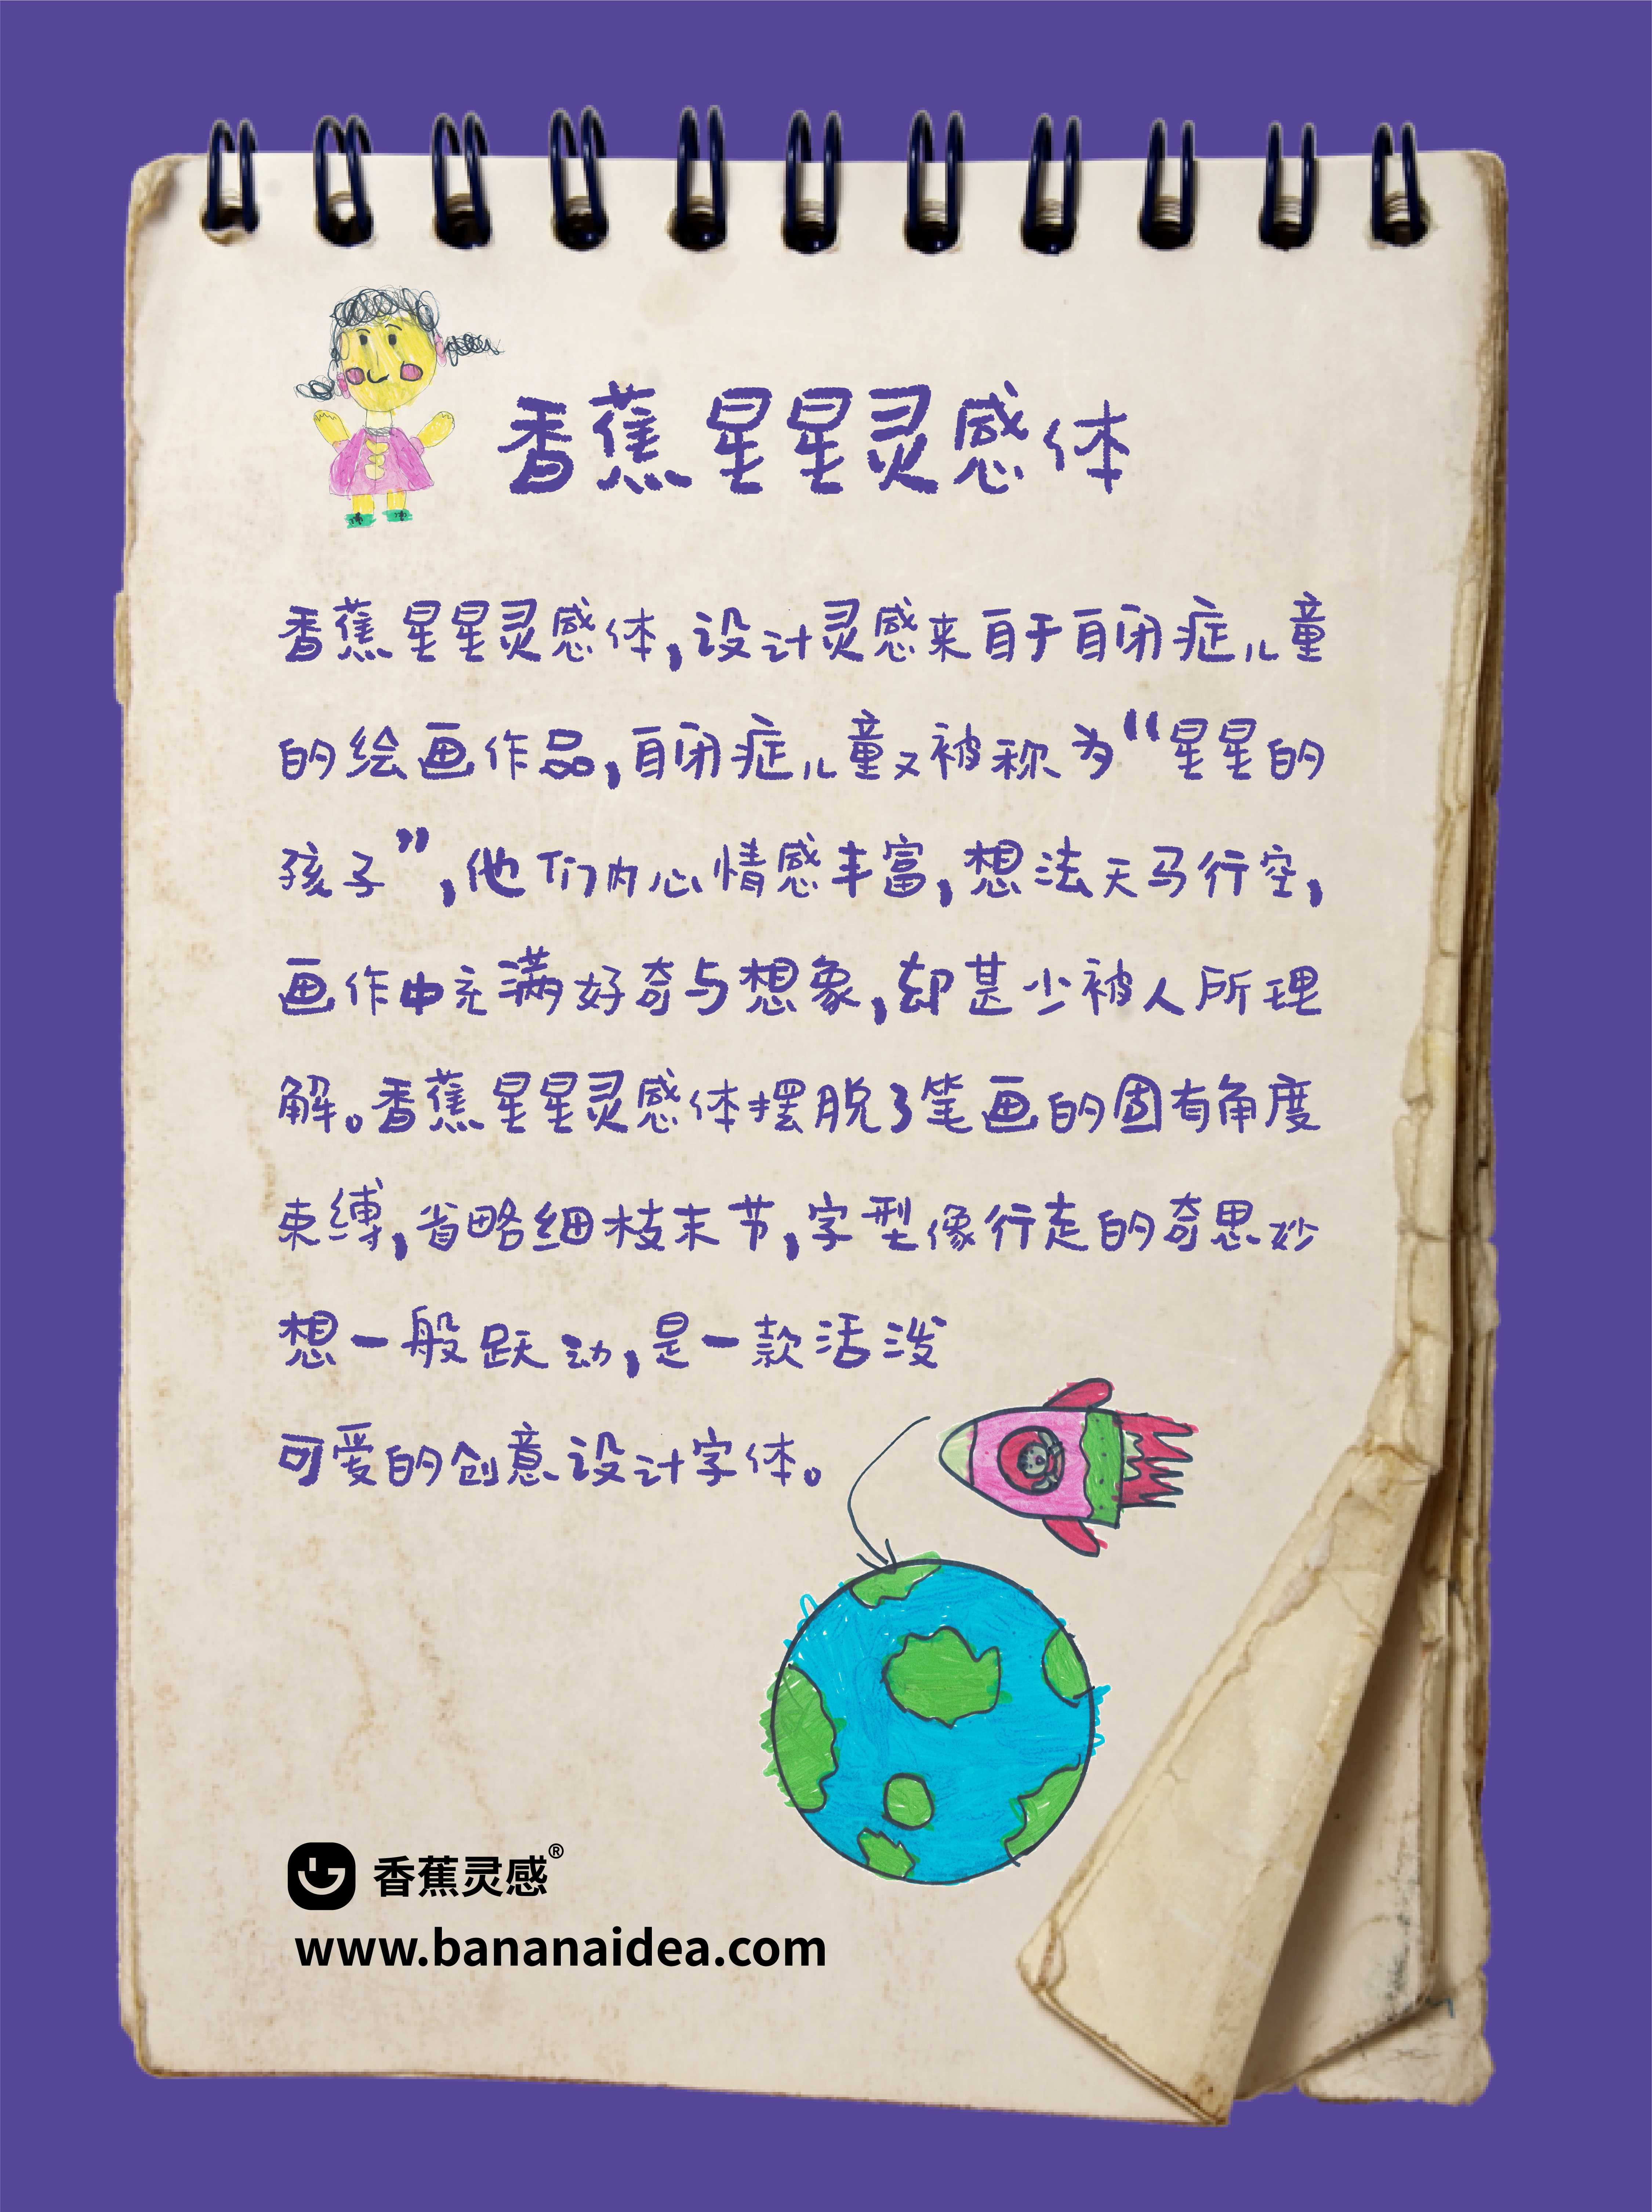 香蕉星星灵感体
香蕉星星灵感体,设计灵感来自于自闭症儿童
的绘画作品,自闭症儿童又被称为“星星的
孩子”,他们内心情感丰富,想法天马行空,
画作中充满好奇与想象,却甚少被人所理
解。香蕉星星灵感体摆脱了笔画的固有角度
束缚,省略细枝末节,字型像行走的奇思妙
想一般跃动,是一款活泼
可爱的创意设计字体。
香蕉灵感®
www.bananaidea.com